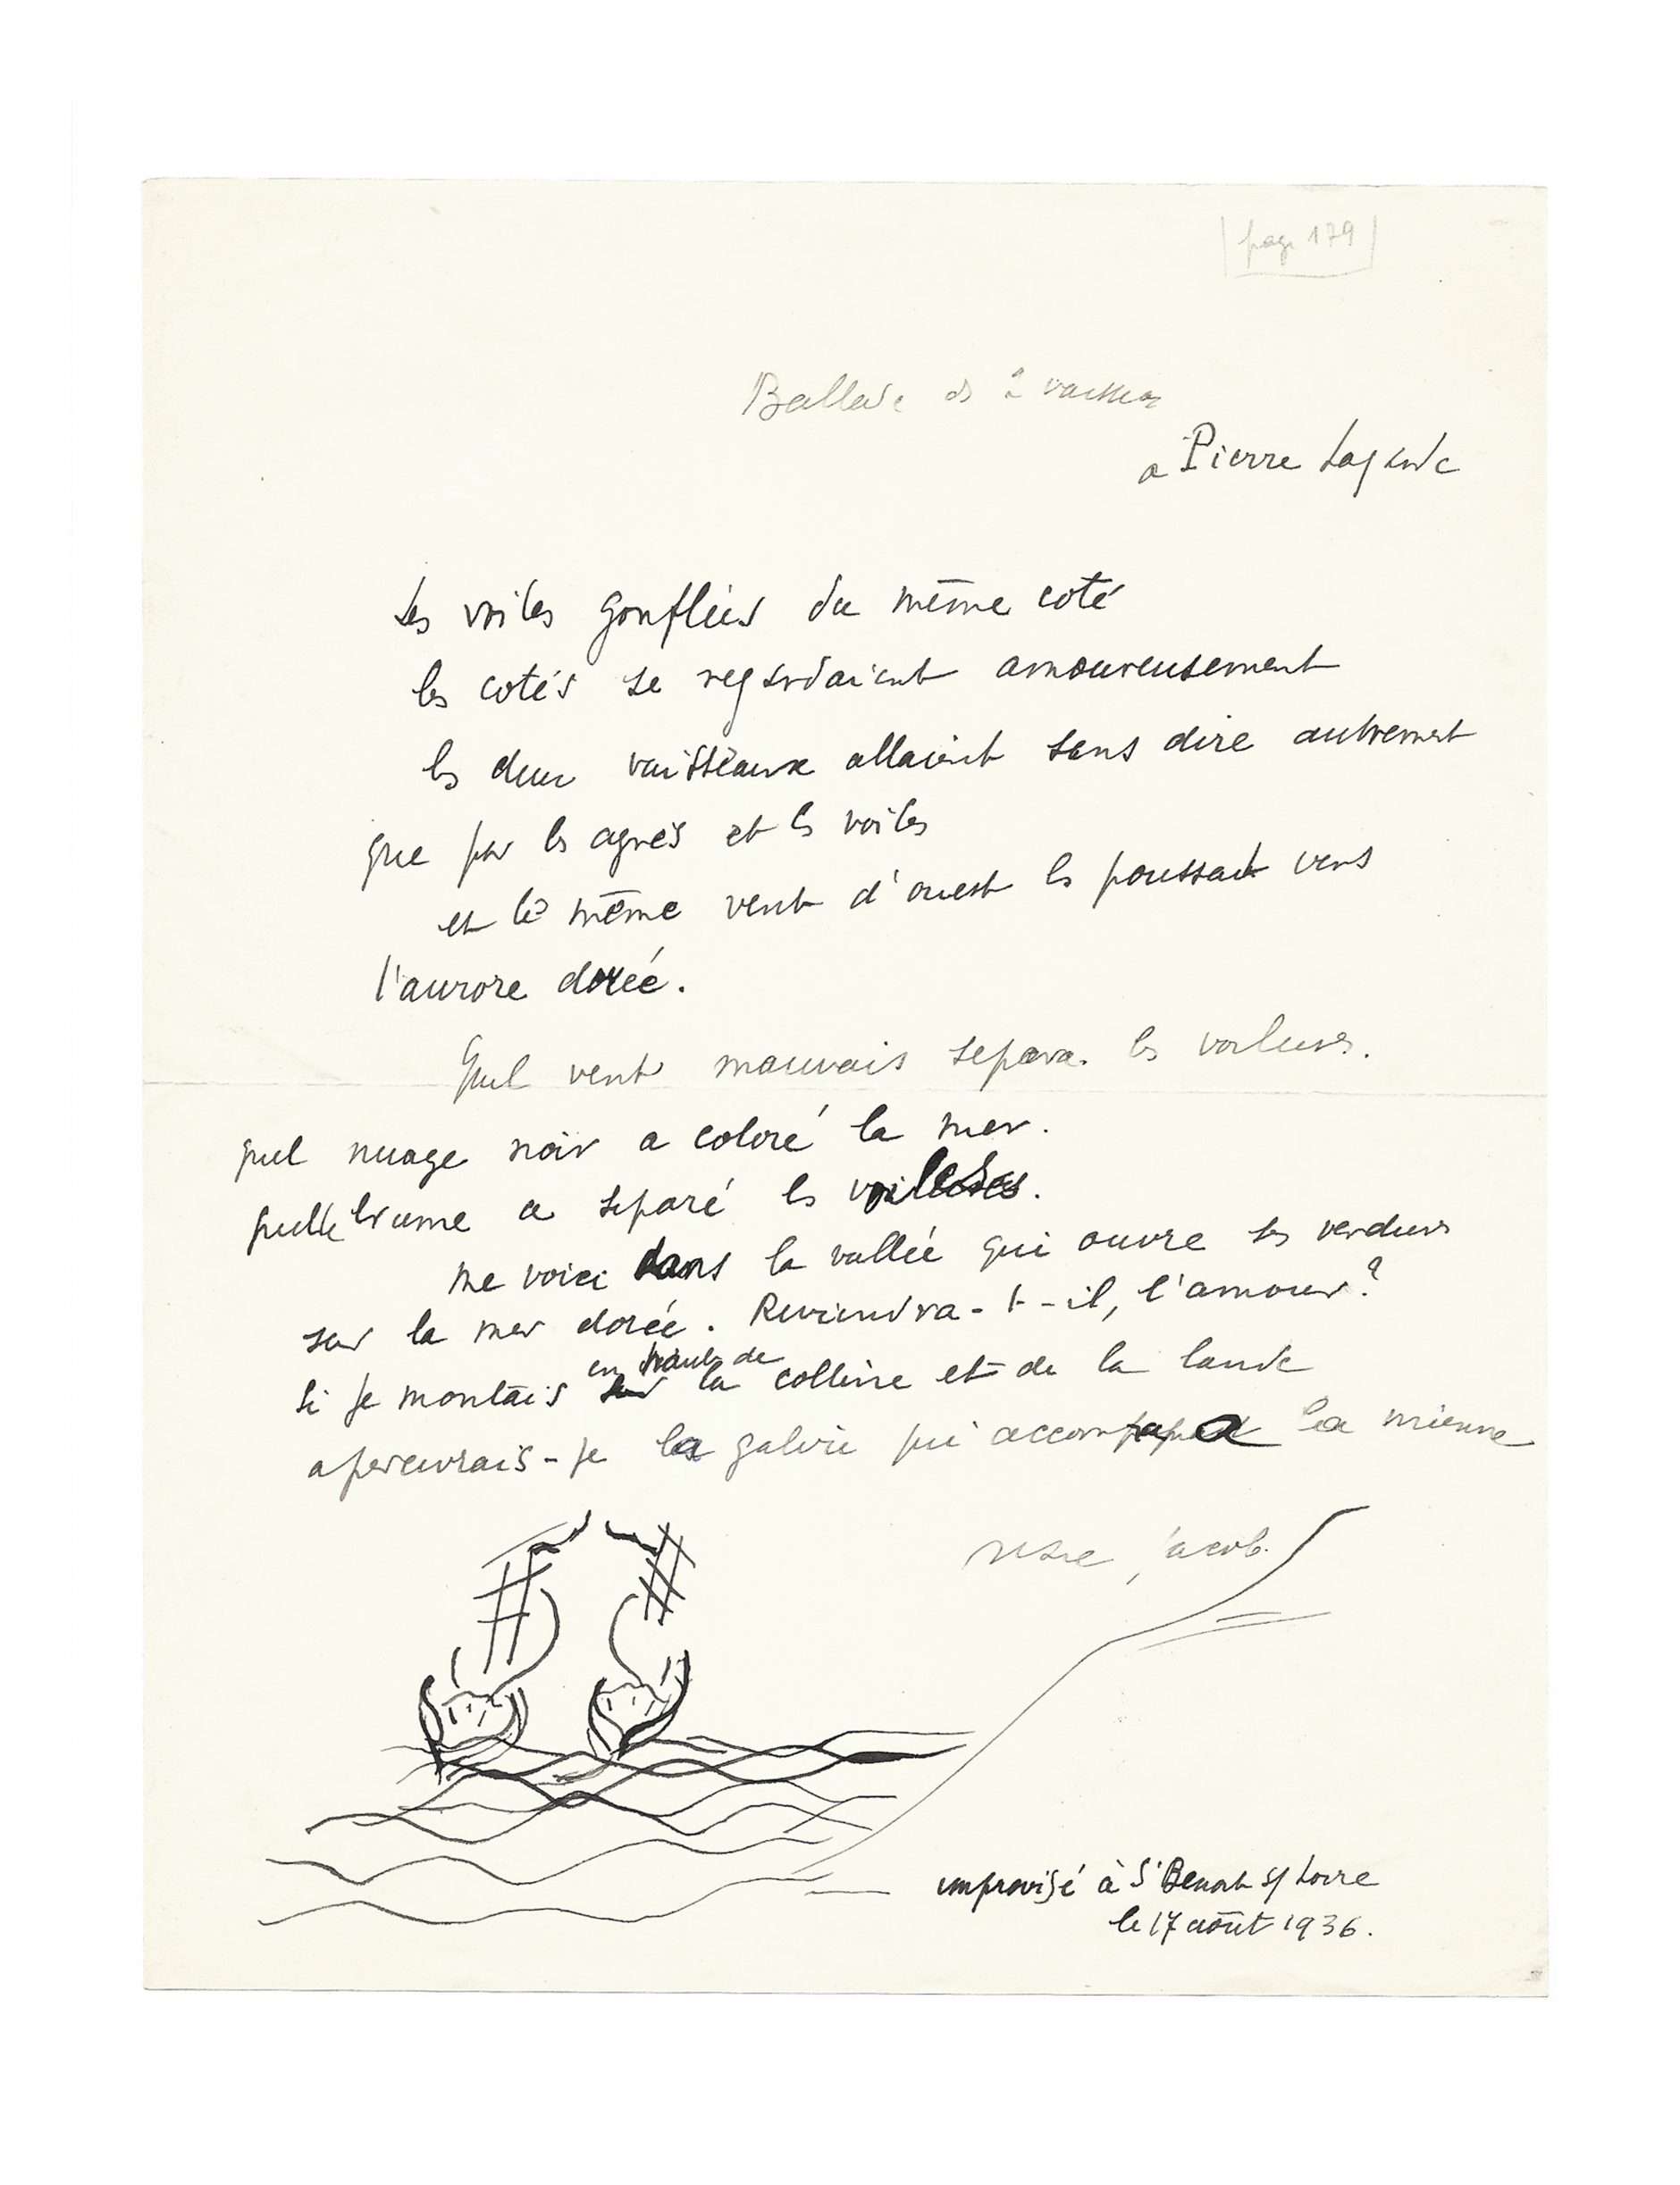 page 179
Ballade
a Pierre Lagarde
Les voiles gonflées du même coté
les cotés se regardaient amoureusement
les deux vaisseaux allaient sans dire autrement
que par les agrès et les voiles
et le même vent d'ouest les poussait vers
l'aurore dorée.
Quel vent mauvais separa les voilures.
quel nuage noir a coloré la mer.
quelle brume a separé les
me voici dans la vallée qui ouvre ses verdures
sur la mer dorée. Reviendra-t-il, l'amour?
Si je montais en haut de la colline et de la lande
apercevrais-je la galère qui accompagna la mienne
Jacob.
improvisé à St Benoit s/ Loire
le 17 août 1936.